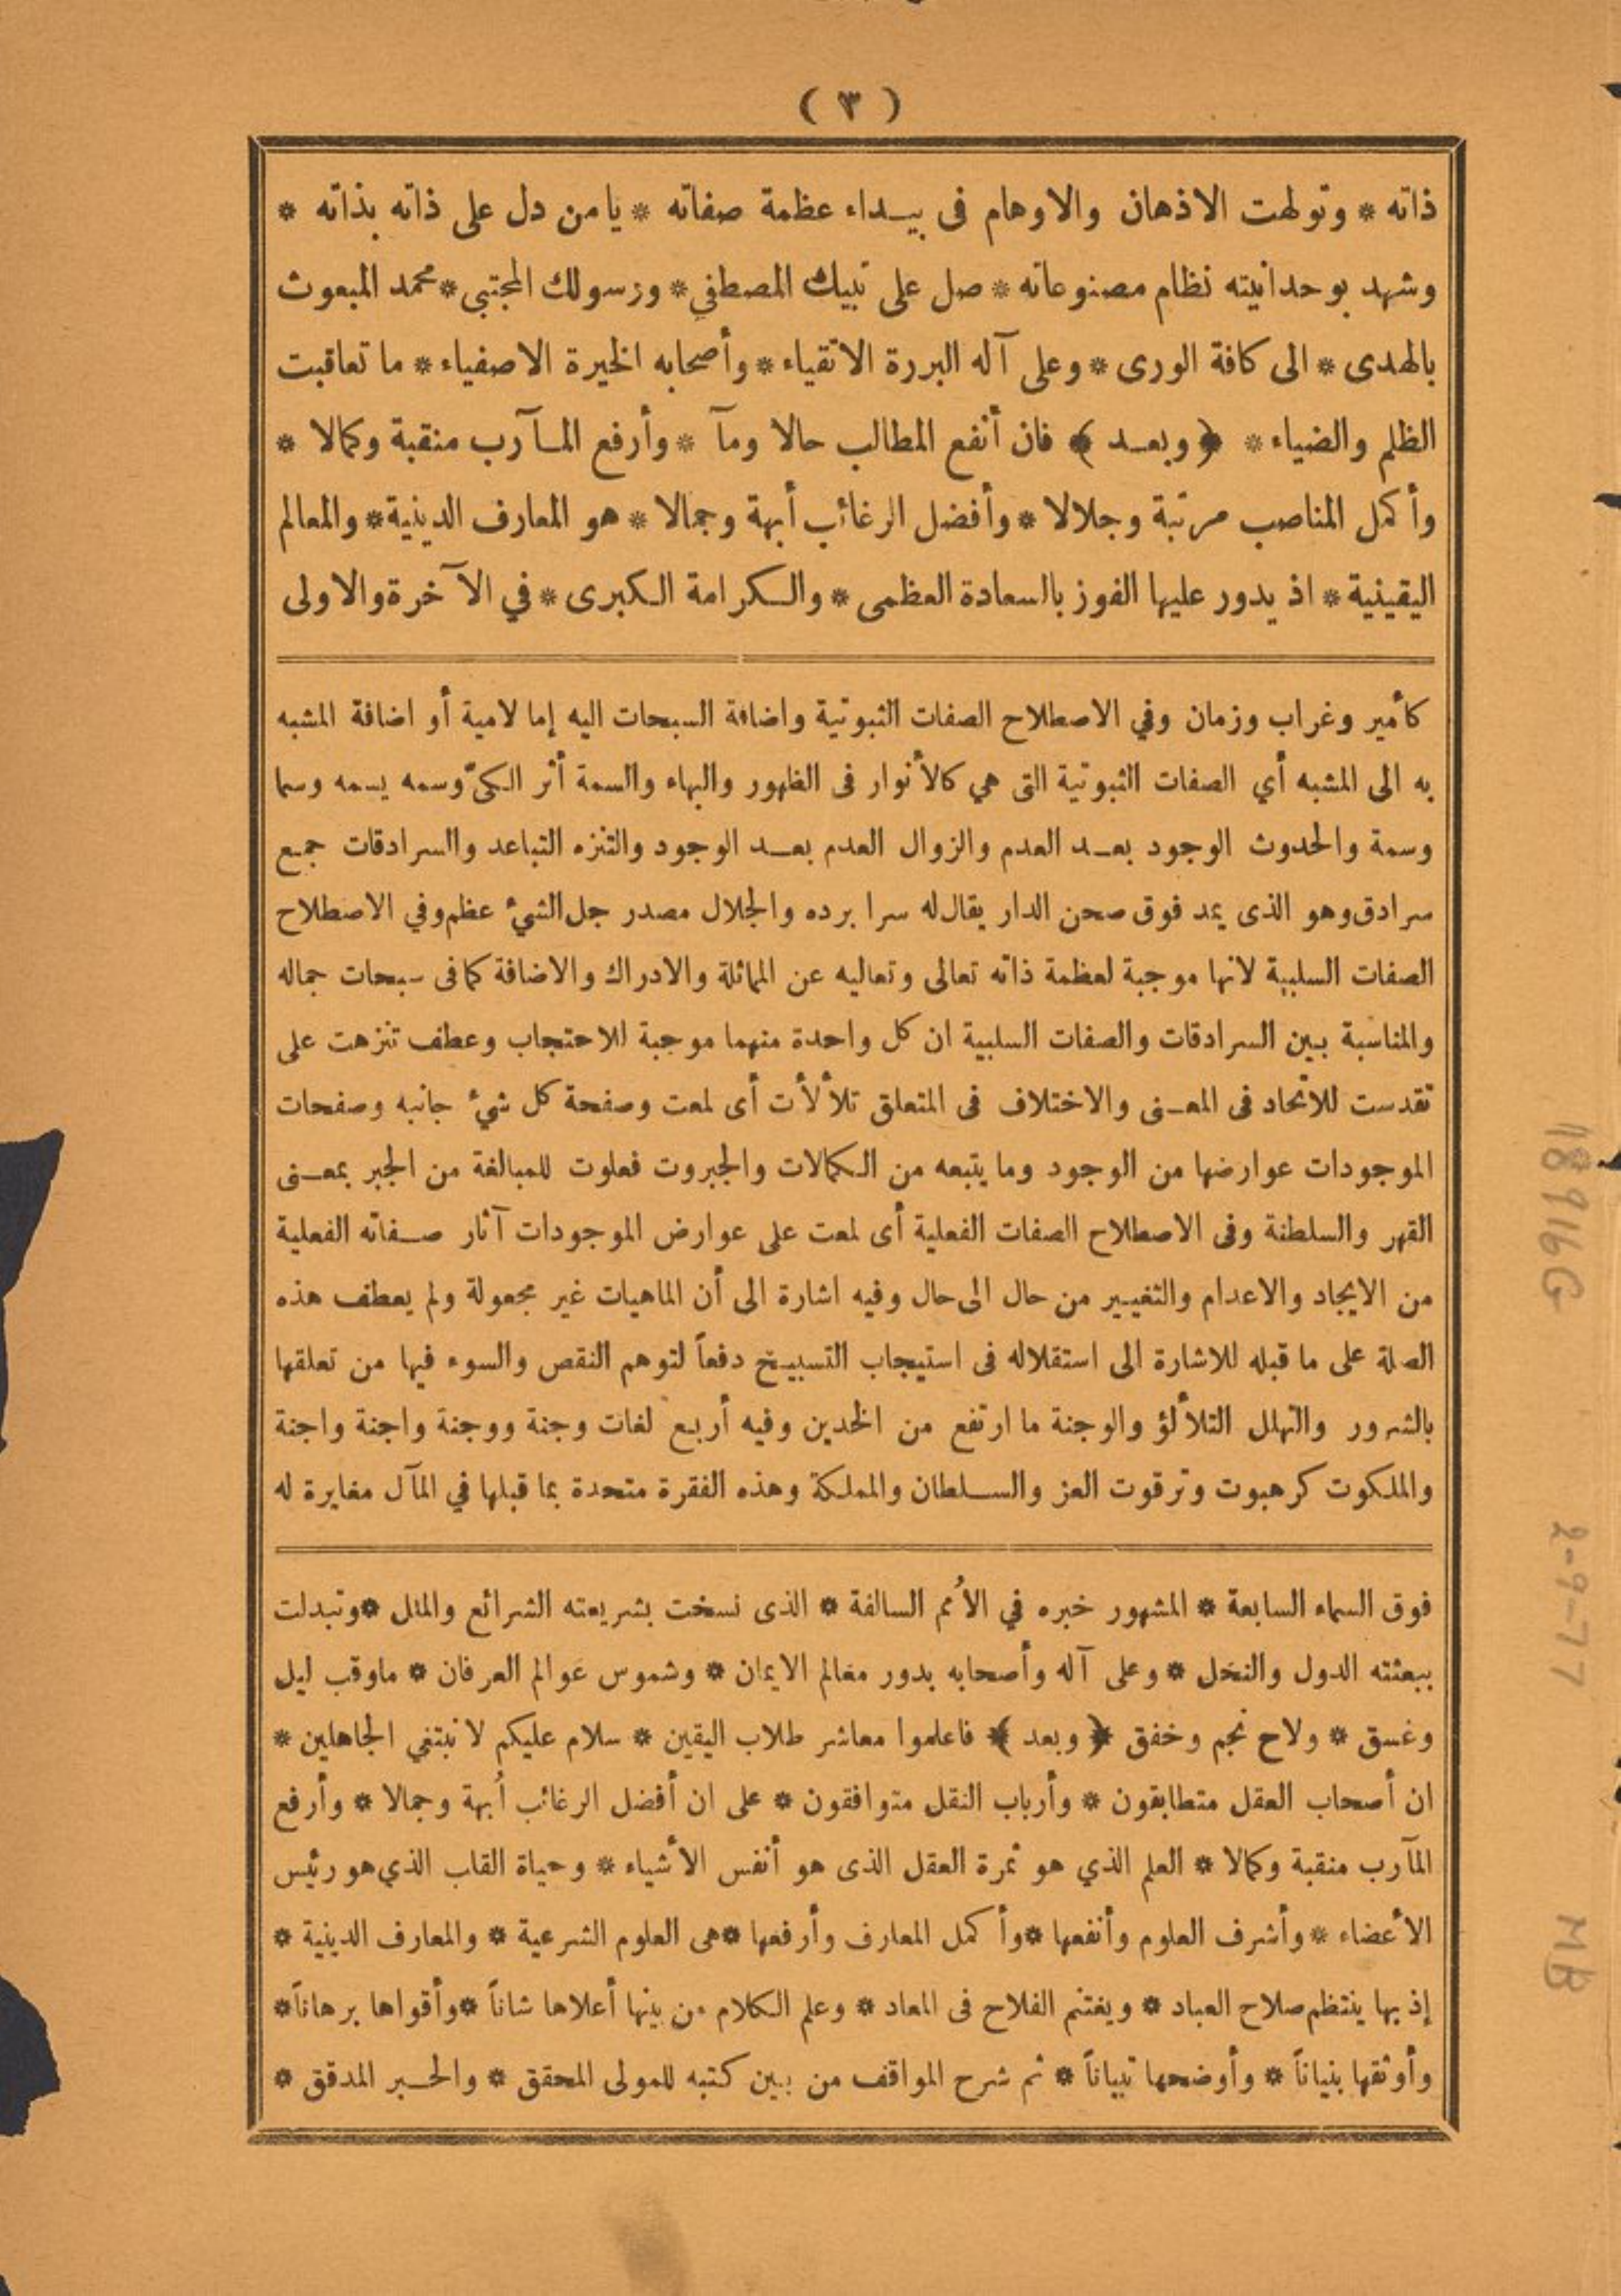 ( ٣ )
ذاته * وتولهت الاذهان والاوهام فى بيداء عظمة صفاته * يا من دل على ذاته بذاته *
وشهد بوحدانيته نظام مصنوعاته * صل على نبيك المصطفي * ورسولك المجتبى * محمد المبعوث
بالهدى * الى كافة الورى * وعلى آله البررة الاتقياء * وأصحابه الخيرة الاصفياء * ما تعاقبت
الظلم والضياء * ﴿ وبعد ﴾ فان أنفع المطالب حالا ومآ * وأرفع المآرب منقبة وكمالا *
وأكمل المناصب مرتبة وجلالا * وأفضل الرغائب أبهة وجمالا * هو المعارف الدينية * والمعالم
اليقينية * اذ يدور عليها الفوز بالسعادة العظمى * والكرامة الكبرى * في الآخرة والاولى
كأمير وغراب وزمان وفي الاصطلاح الصفات الثبوتية واضافة السبحات اليه إما لامية أو اضافة المشبه
به الى المشبه أي الصفات الثبوتية التى هي كالأنوار فى الظهور والبهاء والسمة أثر الكىّ وسمه يسمه وسما
وسمة والحدوث الوجود بعد العدم والزوال العدم بعد الوجود والتنزه التباعد واالسرادقات جمع
سرادق وهو الذى يمد فوق صحن الدار يقال له سرا برده والجلال مصدر جل الشيء عظم وفي الاصطلاح
الصفات السلبية لانها موجبة لعظمة ذاته تعالى وتعاليه عن المماثلة والادراك والاضافة كما فى سبحات جماله
والمناسبة بين السرادقات والصفات السلبية ان كل واحدة منهما موجبة للاحتجاب وعطف تنزهت على
تقدست للاتحاد فى المعنى والاختلاف فى المتعلق تلألأت أى لمعت وصفحة كل شيء جانبه وصفحات
الموجودات عوارضها من الوجود وما يتبعه من الكمالات والجبروت فعلوت للمبالغة من الجبر بمعنى
القهر والسلطنة وفى الاصطلاح الصفات الفعلية أى لمعت على عوارض الموجودات آثار صفاته الفعلية
من الايجاد والاعدام والتغيير من حال الى حال وفيه اشارة الى أن الماهيات غير مجعولة ولم يعطف هذه
الصلة على ما قبله للاشارة الى استقلاله فى استيجاب التسبيح دفعاً لتوهم النقص والسوء فيها من تعلقها
بالشرور والتهلل التلألؤ والوجنة ما ارتفع من الخدين وفيه أربع لغات وجنة ووجنة واجنة واجنة
والملكوت كرهبوت وترقوت العز والسلطان والمملكة وهذه الفقرة متحدة بما قبلها في المآل مغايرة له
فوق السماء السابعة * المشهور خبره في الأُمم السالفة * الذى نسخت بشريعته الشرائع والملل * وتبدلت
ببعثته الدول والنحل * وعلى آله وأصحابه بدور معالم الايمان * وشموس عوالم العرفان * ماوقب ليل
وغسق * ولاح نجم وخفق ﴿ وبعد ﴾ فاعلموا معاشر طلاب اليقين * سلام عليكم لا نبتغي الجاهلين *
ان أصحاب العقل متطابقون * وأرباب النقل متوافقون * على ان أفضل الرغائب أُبهة وجمالا * وأرفع
المآرب منقبة وكمالا * العلم الذي هو ثمرة العقل الذى هو أنفس الأشياء * وحياة القاب الذي هو رئيس
الأعضاء * وأشرف العلوم وأنفعها * وأكمل المعارف وأرفعها * هى العلوم الشرعية * والمعارف الدينية *
إذ بها ينتظم صلاح العباد * ويغتنم الفلاح فى المعاد * وعلم الكلام من بينها أعلاها شاناً * وأقواها برهاناً *
وأوثقها بنياناً * وأوضحها تبياناً * ثم شرح المواقف من بين كتبه للمولى المحقق * والحبر المدقق *
18916G
2-9-77
MB